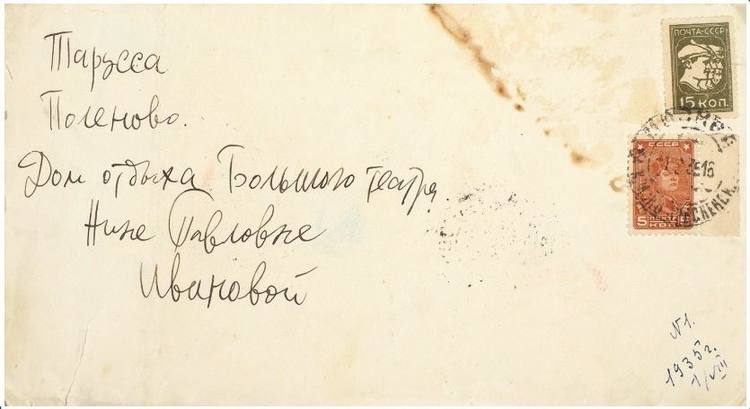 Тарусса
Поленово.
Дом отдыха Большого театра
Нине Павловне
Ивановой
ПОЧТА-СССР
15 КОП.
СССР
ПОЧТА
5 КОП. 5
N1.
1935г.
1/VIII